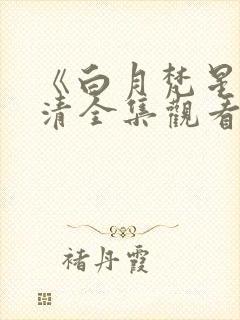 《白月梵星
清全集觀看
褚丹霞